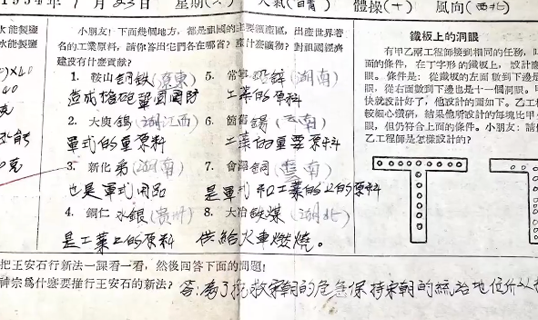 1954年7月23日 星期(六) 天氣(晴) 體操(十) 風向(西北)
水能製鹽
水能製鹽
小朋友！下面幾個地方，都是祖國的主要礦產區，出產世界著
名的工業原料，請你答出它們各在哪省？或什麼礦物？對祖國經濟
建設有什麼貢獻？
1. 鞍山 鋼鐵(遼東)
造成槍砲鞏固國防
2. 大庾 錫(江西)
軍式的重原料
3. 新化 (湖南)
也是軍式用品
4. 銅仁 水銀(貴州)
是工業上的原料
5. 常寧 鉛鋅(湖南)
工業的原料
6. 箇舊 錫(雲南)
工業的重要原料
7. 會澤 銅(雲南)
是軍式和工業的上的原料
8. 大冶 鐵煤(湖北)
供給火車燃燒。
鐵板上的洞眼
有甲乙兩工程師接到相同的任務，
面的條件，在丁字形的鐵板上，設計
眼。條件是：從鐵板的左面數到下邊是
眼，從右面數到下邊也是十一個洞眼。甲
快就設計好了，他設計的圖如下。乙工程
較細心鑽研，結果他所設計的每塊比甲
眼，但仍符合上面的條件。小朋友！請你
乙工程師是怎樣設計的？
把王安石行新法一課看一看，然後回答下面的問題！
神宗爲什麼要推行王安石的新法？答：爲了挽救宋朝的危急保持宋朝的統治地位所以